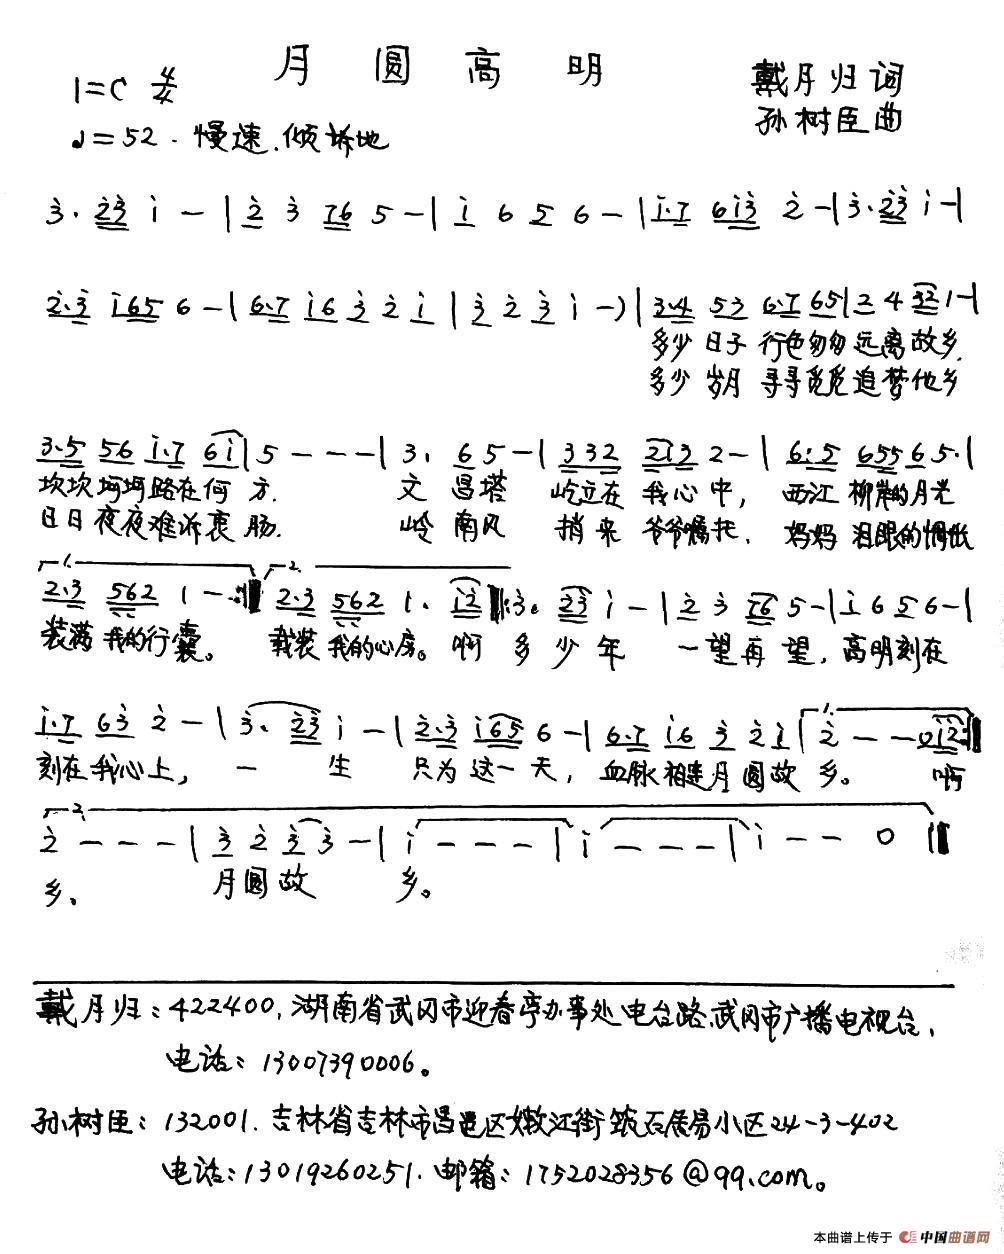 月圆高明
1=C 4/4
戴月归词
孙树臣曲
♩=52. 慢速.倾诉地
3. 23 i - | 2 3 76 5 - | i 6 5 6 - | i.7 6i3 2 - | 3.23 i - |
2.3 i65 6 - | 6.7 i6 3 2 i | 3 2 3 i - ) | 3.4 53 6.7 65 | 2 4 32 1 - |
多少 日子 行色匆匆 远离故乡.
多少 岁月 寻寻觅觅 追梦他乡
3.5 56 i.7 6i | 5 - - - | 3. 6 5 - | 332 213 2 - | 6.5 6556 5. |
坎坎坷坷路在何 方. 文 昌塔 屹立在 我心中, 西江 柳岸的月光
日日夜夜难诉衷 肠. 岭 南风 捎来 爷爷嘱托, 妈妈 泪眼的惆怅
1. 2.
2.3 562 1 - :‖ 2.3 562 1. i2 ‖: 3. 23 i - | 2 3 76 5 - | i 6 5 6 - |
装满 我的行囊。 载装 我的心房。 啊 多少年 一望再望, 高明刻在
i.7 63 2 - | 3. 23 i - | 2.3 i65 6 - | 6.7 i6 3 2i | 1. 2 - - 0i2 :‖
刻在我心上, 一 生 只为这一天, 血脉相连月圆故 乡。 啊
2.
2 - - - | 3 2 3 3 - | i - - - | i - - - | i - - 0 ‖
乡. 月圆故 乡。
戴月归: 422400, 湖南省武冈市迎春亭办事处电台路.武冈市广播电视台,
电话: 13007390006。
孙树臣: 132001. 吉林省吉林市昌邑区嫩江街筑石居易小区24-3-402
电话:13019260251. 邮箱: 1752028356@99.com。
本曲谱上传于 中国曲谱网